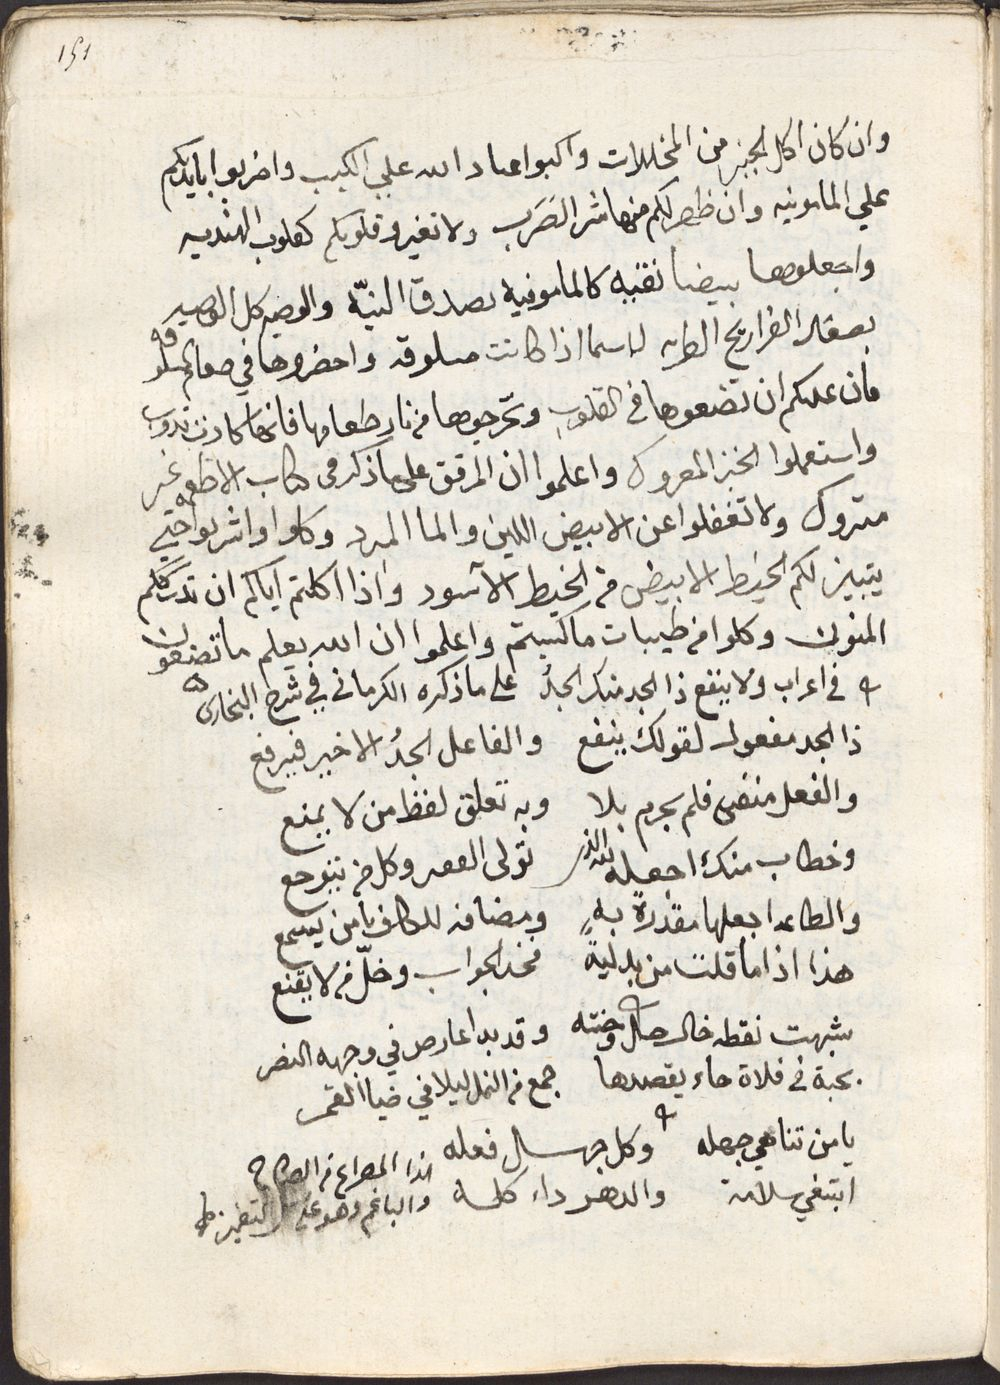 ١٥١
وان كان اكل الجبز من المخللات واكبوا عباد الله علي الكبب واضربوا بايديكم
علي المامونيه وان ظهر لكم منها شر الضرب ولا تغيروا قلوبكم كقلوب الهنديه
واجعلوها بيضا نقيه كالمامونية بصدق النية والوصيه كل الوصيه
بصغار الفراريج الطريه لاسيما اذا كانت مسلوقه واحضروها في
فان عليكم ان تضعوها في القلوب وتخرجوها من نار طعامها فانها كادت تذوب
واستعملوا الخبز المعروك واعلموا ان المرقق على ما ذكر في كتاب الاطعمه غير
متروك ولا تغفلوا عن الابيض اللين والما المبرد وكلوا واشربوا حتي
يتبين لكم الخيط الابيض من الخيط الاسود واذا اكلتم اياكم ان
المنون وكلوا من طيبات ما كسبتم واعلموا ان الله يعلم ما تصنعون
في اعراب ولا ينفع ذا الجد منك الجدُ على ما ذكره الكرماني في شرح البخاري
ذا الجد مفعول لقولك ينفع والفاعل الجدُ الاخير فيرفع
والفعل منفى فلم يجرم بلا وبه تعلق لفظ من لا يمنع
وخطاب منك اجعله لله الذي تولى وكل من يتوجع
والطاعه اجعلها مقدرة به ومضافة للكاف يا من يسمع
هذا اذا ما قلت من بدلية فخذ الجواب وخلّ من لا يقنع
شبهت نقطه خال وجنته وقد بدا عارض في وجهه النضر
بحبة في فلاة جاء يقصدها جمع من النمل ليلا في ضيا القمر
يا من تناهي جهله وكل جهل فعله
ابتغي سلامة والدهر داء كله
هذا المصراع من الصحاح
والباغم وهو على